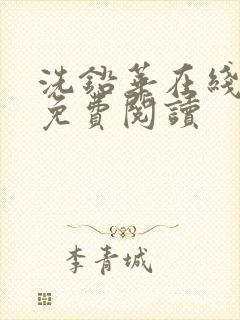 洗鉛華在綫
免費閱讀
李青城